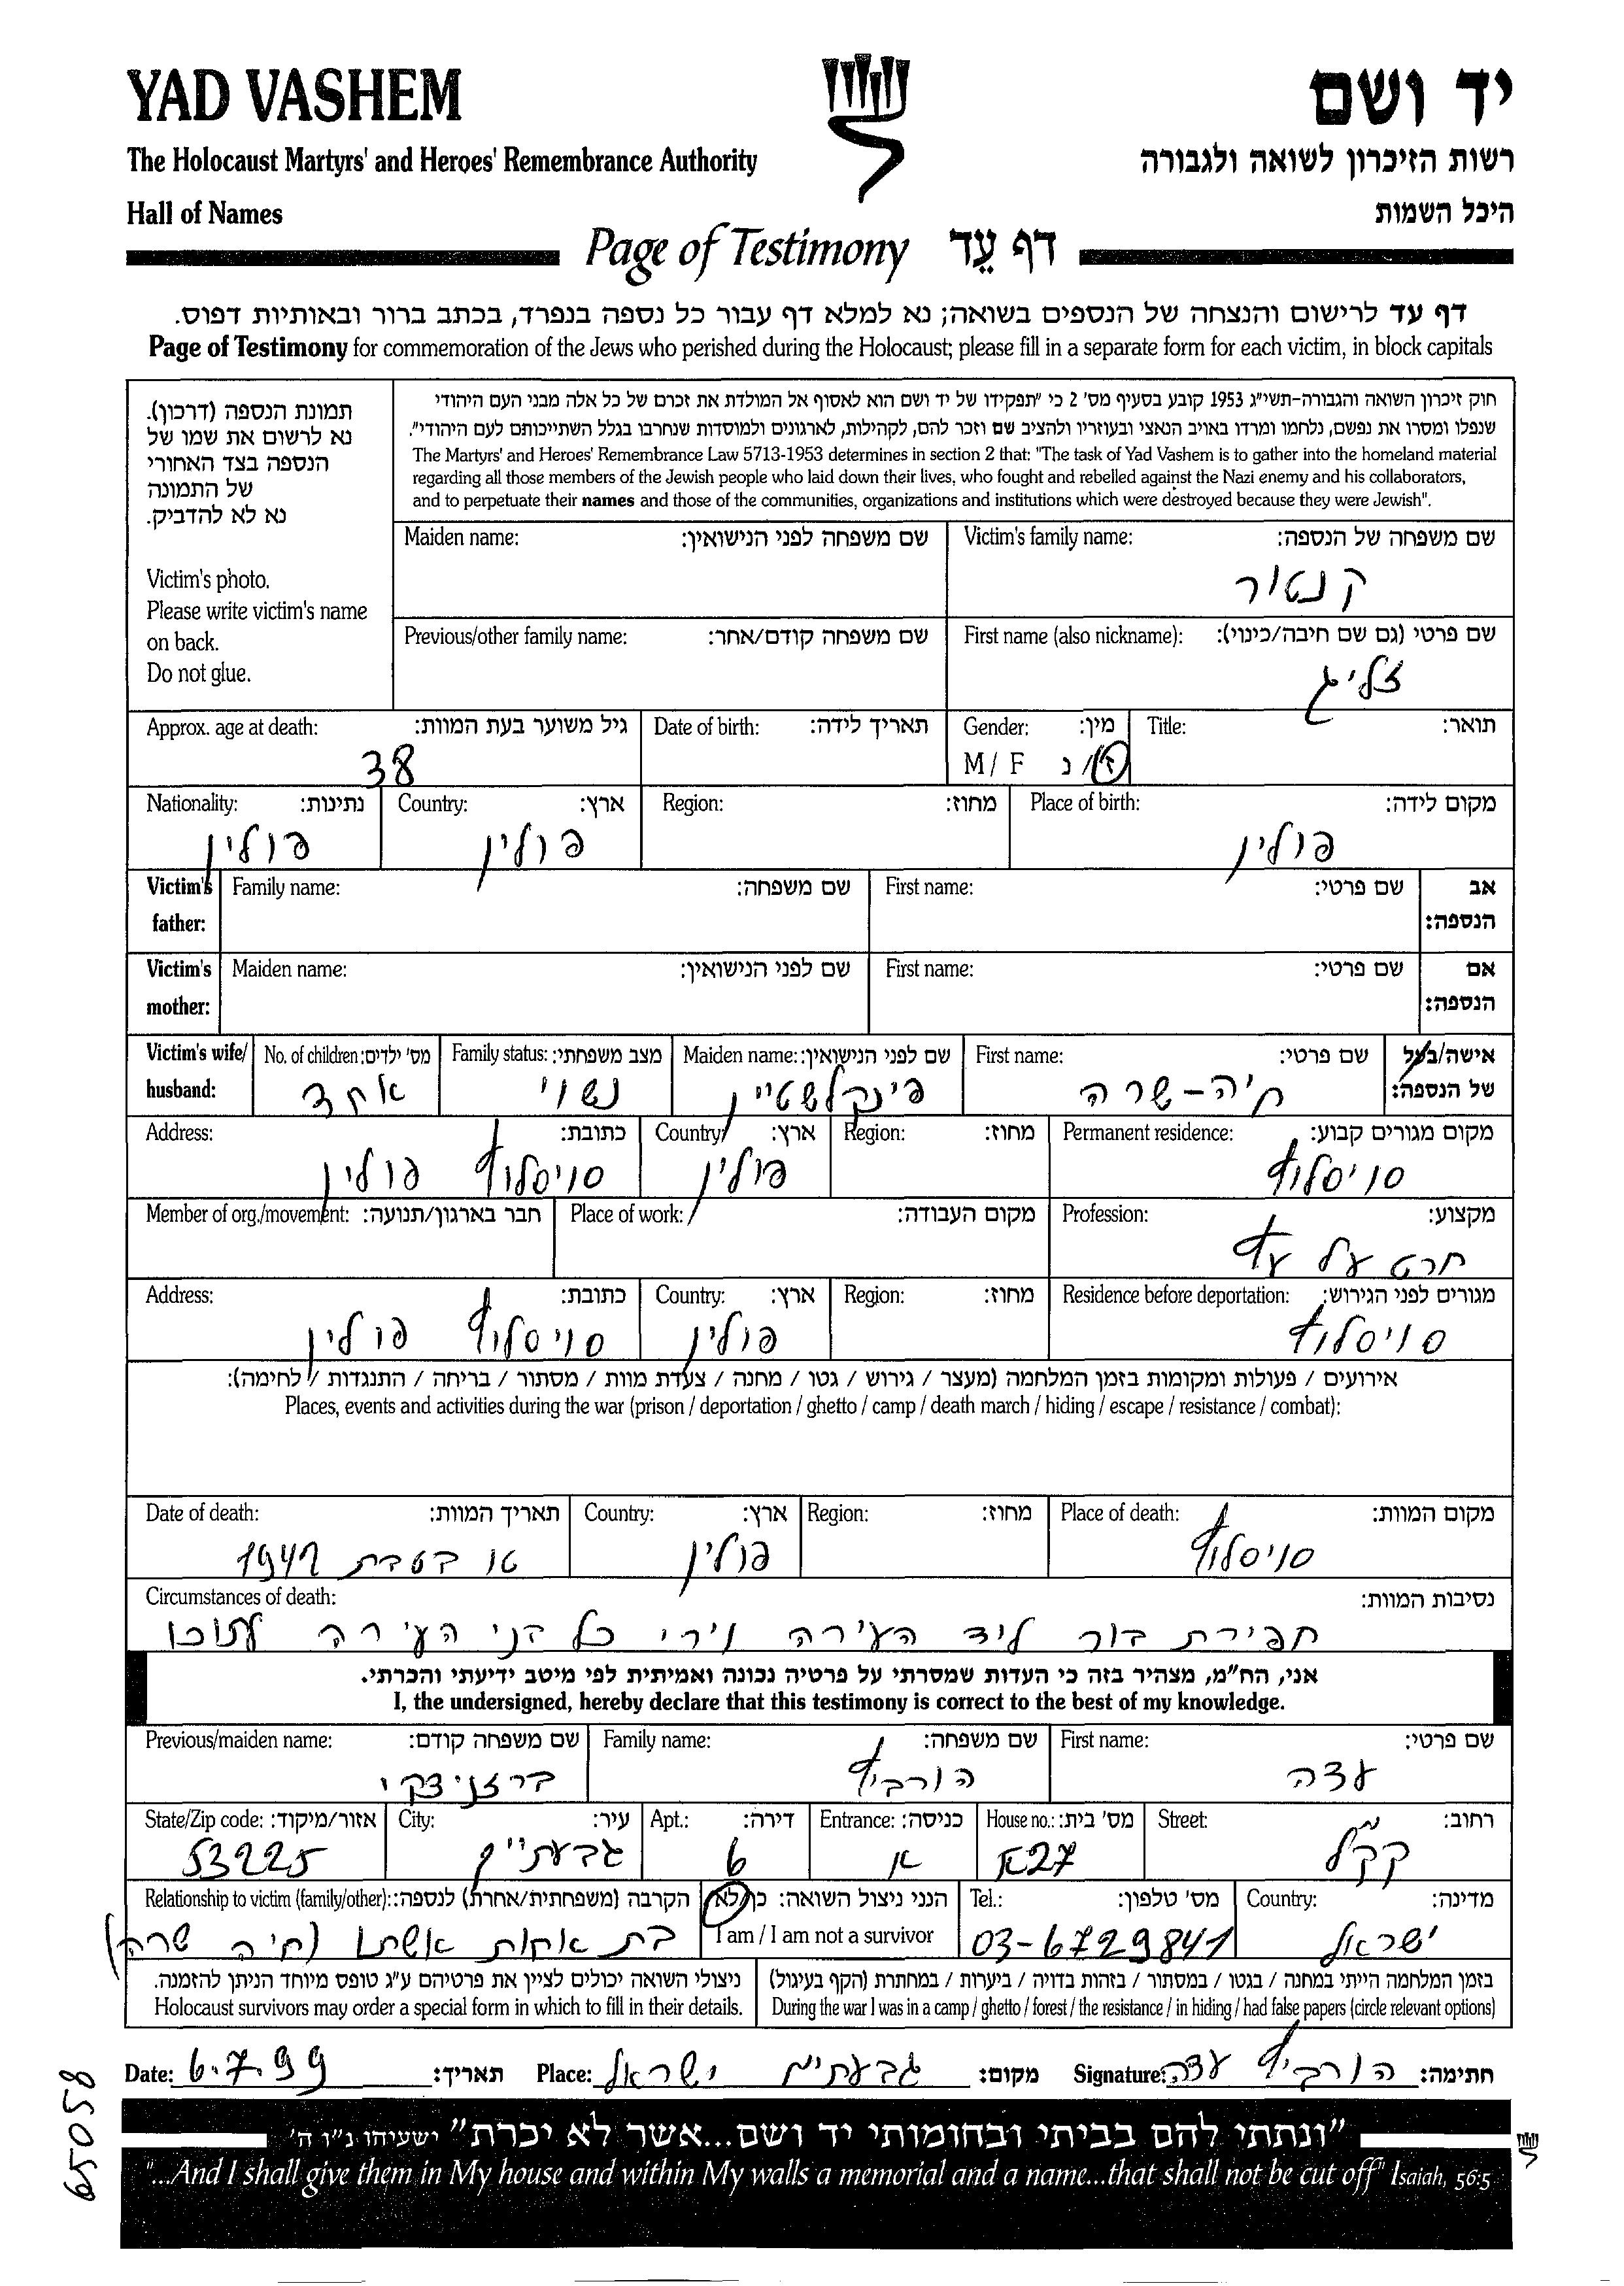 YAD VASHEM יד ושם
The Holocaust Martyrs' and Heroes' Remembrance Authority רשות הזיכרון לשואה ולגבורה
Hall of Names היכל השמות
Page of Testimony דף עֵד
דף עד לרישום והנצחה של הנספים בשואה; נא למלא דף עבור כל נספה בנפרד, בכתב ברור ובאותיות דפוס.
Page of Testimony for commemoration of the Jews who perished during the Holocaust; please fill in a separate form for each victim, in block capitals
תמונת הנספה (דרכון).
נא לרשום את שמו של
הנספה בצד האחורי
של התמונה
נא לא להדביק.
Victim's photo.
Please write victim's name
on back.
Do not glue.
חוק זיכרון השואה והגבורה-תשי״ג 1953 קובע בסעיף מס' 2 כי ״תפקידו של יד ושם הוא לאסוף אל המולדת את זכרם של כל אלה מבני העם היהודי
שנפלו ומסרו את נפשם, נלחמו ומרדו באויב הנאצי ובעוזריו ולהציב שם וזכר להם, לקהילות, לארגונים ולמוסדות שנחרבו בגלל השתייכותם לעם היהודי״.
The Martyrs' and Heroes' Remembrance Law 5713-1953 determines in section 2 that: "The task of Yad Vashem is to gather into the homeland material
regarding all those members of the Jewish people who laid down their lives, who fought and rebelled against the Nazi enemy and his collaborators,
and to perpetuate their names and those of the communities, organizations and institutions which were destroyed because they were Jewish".
Maiden name: שם משפחה לפני הנישואין: Victim's family name: שם משפחה של הנספה:
קנטור
Previous/other family name: שם משפחה קודם/אחר: First name (also nickname): שם פרטי (גם שם חיבה/כינוי):
זליג
Approx. age at death: גיל משוער בעת המוות: Date of birth: תאריך לידה: Gender: מין: Title: תואר:
38 M / F ז/נ
Nationality: נתינות: Country: ארץ: Region: מחוז: Place of birth: מקום לידה:
פולין פולין פולין
Victim's Family name: שם משפחה: First name: שם פרטי: אב
father: הנספה:
Victim's Maiden name: שם לפני הנישואין: First name: שם פרטי: אם
mother: הנספה:
Victim's wife/ No. of children: מס' ילדים: Family status: מצב משפחתי: Maiden name: שם לפני הנישואין: First name: שם פרטי: אישה/בעל
husband: אחד נשוי פינקלשטיין חיה-שרה של הנספה:
Address: כתובת: Country: ארץ: Region: מחוז: Permanent residence: מקום מגורים קבוע:
סניסלוף פולין פולין סניסלוף
Member of org./movement: חבר בארגון/תנועה: Place of work: מקום העבודה: Profession: מקצוע:
חרט על עץ
Address: כתובת: Country: ארץ: Region: מחוז: Residence before deportation: מגורים לפני הגירוש:
סניסלוף פולין פולין סניסלוף
אירועים / פעולות ומקומות בזמן המלחמה (מעצר / גירוש / גטו / מחנה / צעדת מוות / מסתור / בריחה / התנגדות / לחימה):
Places, events and activities during the war (prison / deportation / ghetto / camp / death march / hiding / escape / resistance / combat):
Date of death: תאריך המוות: Country: ארץ: Region: מחוז: Place of death: מקום המוות:
טו בטבת 1942 פולין סניסלוף
Circumstances of death: נסיבות המוות:
חפירת בור ליד העירה וירי כל בני העירה לתוכו
אני, הח״מ, מצהיר בזה כי העדות שמסרתי על פרטיה נכונה ואמיתית לפי מיטב ידיעתי והכרתי.
I, the undersigned, hereby declare that this testimony is correct to the best of my knowledge.
Previous/maiden name: שם משפחה קודם: Family name: שם משפחה: First name: שם פרטי:
ברזניצקי הורביץ עדה
State/Zip code: אזור/מיקוד: City: עיר: Apt.: דירה: Entrance: כניסה: House no.: מס' בית: Street: רחוב:
53225 גבעתיים 6 א 27א קק״ל
Relationship to victim (family/other): הקרבה (משפחתית/אחרת) לנספה: הנני ניצול השואה: כן/לא Tel.: מס' טלפון: Country: מדינה:
בת אחות אשתו (חיה שרה) I am / I am not a survivor 03-6729841 ישראל
ניצולי השואה יכולים לציין את פרטיהם ע״ג טופס מיוחד הניתן להזמנה. בזמן המלחמה הייתי במחנה / בגטו / במסתור / בזהות בדויה / ביערות / במחתרת (הקף בעיגול)
Holocaust survivors may order a special form in which to fill in their details. During the war I was in a camp / ghetto / forest / the resistance / in hiding / had false papers (circle relevant options)
Date: 6.7.99 תאריך: Place: גבעתיים ישראל מקום: Signature: הורביץ עדה חתימה:
65058
״ונתתי להם בביתי ובחומותי יד ושם...אשר לא יכרת״ ישעיהו נ״ו ה'
"...And I shall give them in My house and within My walls a memorial and a name...that shall not be cut off" Isaiah, 56:5